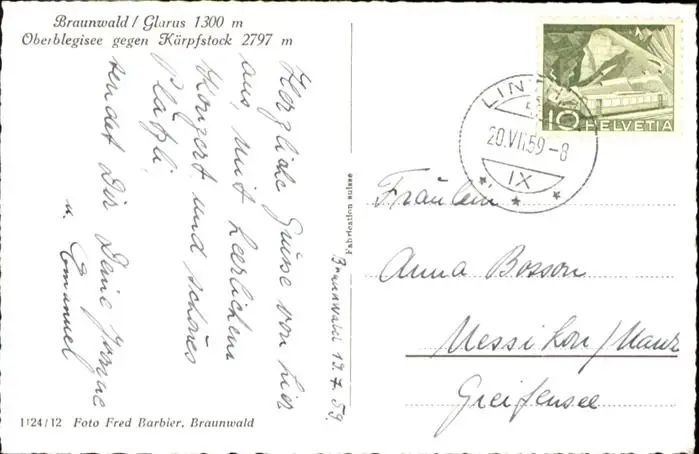 Braunwald / Glarus 1300 m
Oberblegisee gegen Kärpfstock 2797 m
Herzliche Grüsse von hier
aus, mit herrlichem
Konzert und schönes
Plätzli,
sendet Dir Deine
u. Emanuel
1124/12 Foto Fred Barbier, Braunwald
Fabrication suisse
Braunwald 19.7.59
LINTHAL
20.VII.59-8
IX
10 HELVETIA
Fräulein
Anna Bosson
Messikon/Maur
Greifensee